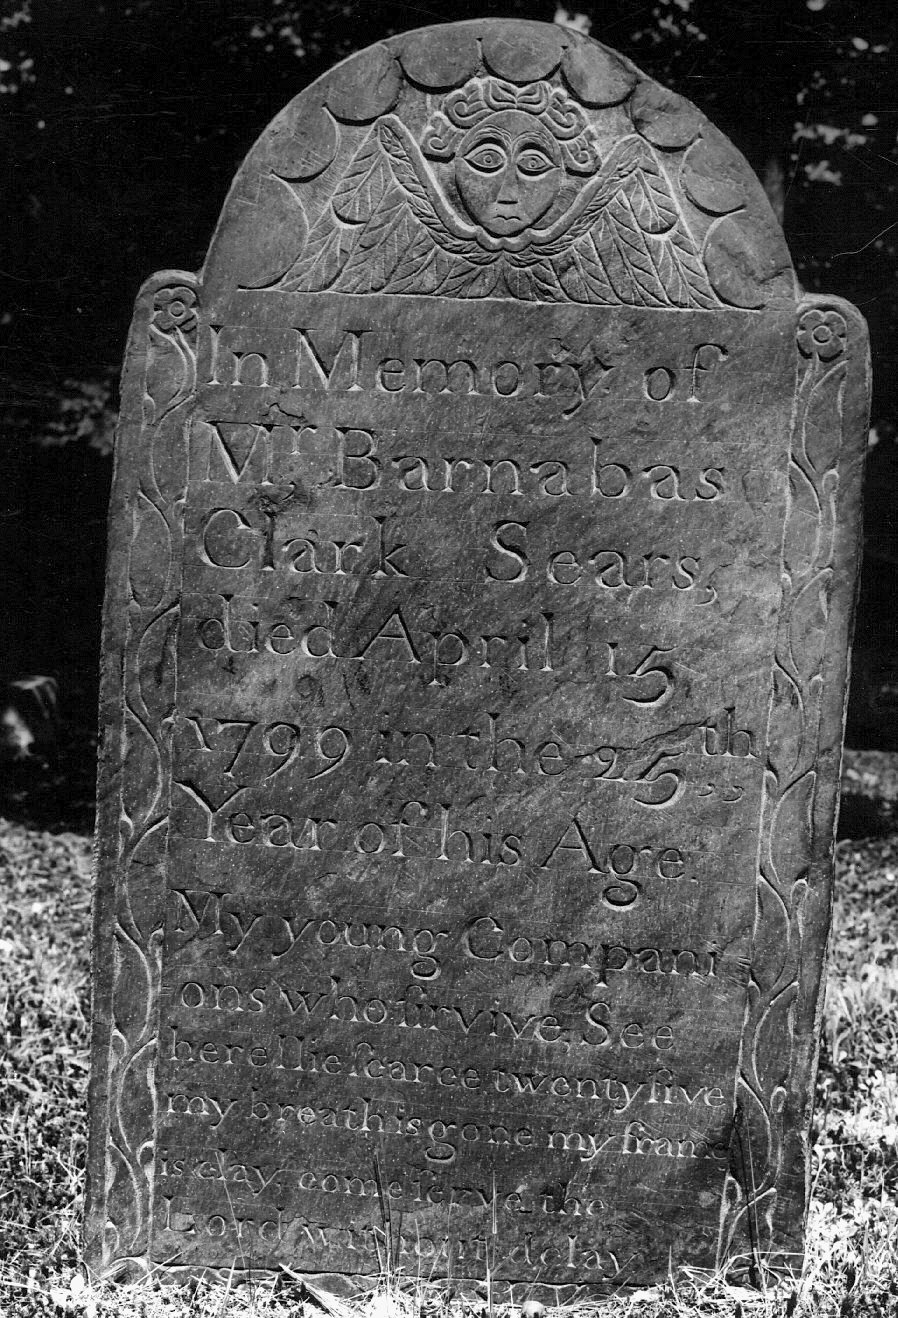 In Memory of
Mr Barnabas
Clark Sears,
died April 15
1799 in the 25th,
Year of his Age.
My young Compani =
ons who ſurvive. See
here I lie ſcarce twenty five
my breath is gone my frame
is clay, come ſerve the
Lord without delay